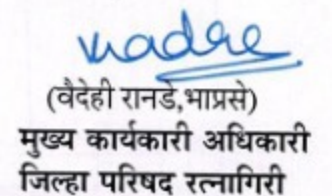 (वैदेही रानडे,भाप्रसे)
मुख्य कार्यकारी अधिकारी
जिल्हा परिषद रत्नागिरी